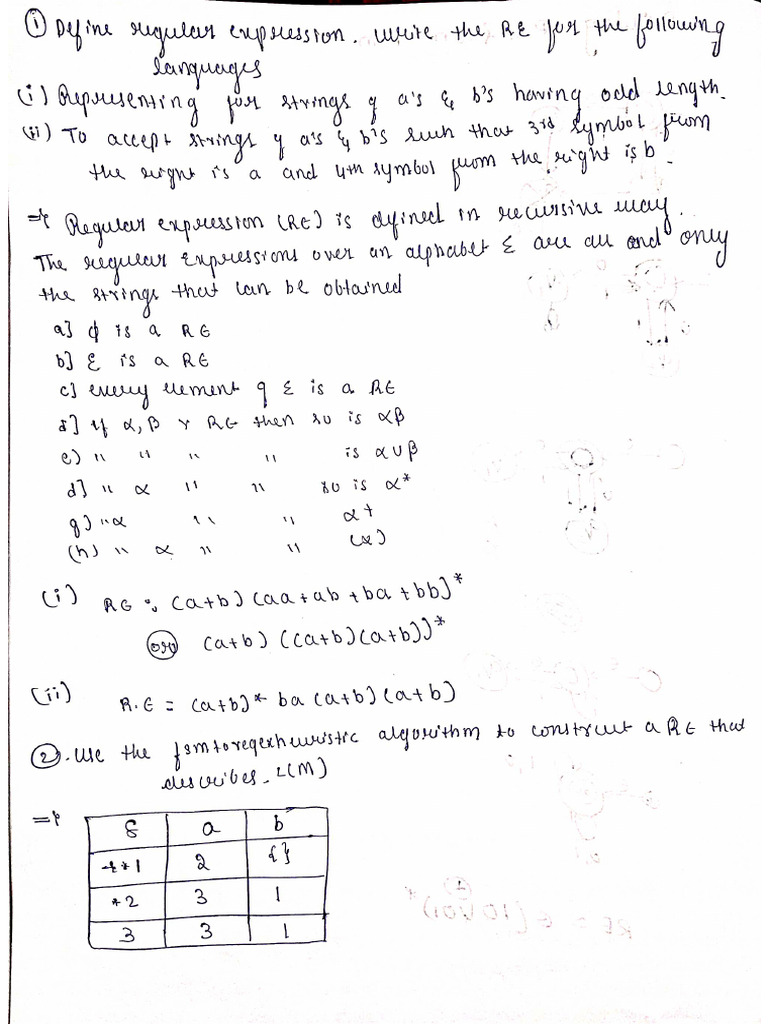 ① Define regular expression. Write the RE for the following
languages
(i) Representing for strings of a's & b's having odd length.
(ii) To accept strings of a's & b's such that 3rd symbol from
the right is a and 4th symbol from the right is b.
=> Regular expression (RE) is defined in recursive way.
The regular expressions over an alphabet Σ are all and only
the strings that can be obtained
a] φ is a RE
b] ε is a RE
c] every element of Σ is a RE
d] If α, β r RE then so is αβ
e) " " " " is α∪β
d] " α " " so is α*
g) " α " " α+
(h) " α " " (α)
(i) RE : (a+b) (aa+ab+ba+bb)*
(or) (a+b) ((a+b)(a+b))*
(ii) R.E = (a+b)* ba (a+b) (a+b)
②. Use the fsmtoregexheuristic algorithm to construct a RE that
describes L(M)
=>
δ a b
→*1 2 { }
*2 3 1
3 3 1
RE = ε (10 ∪ 01)*